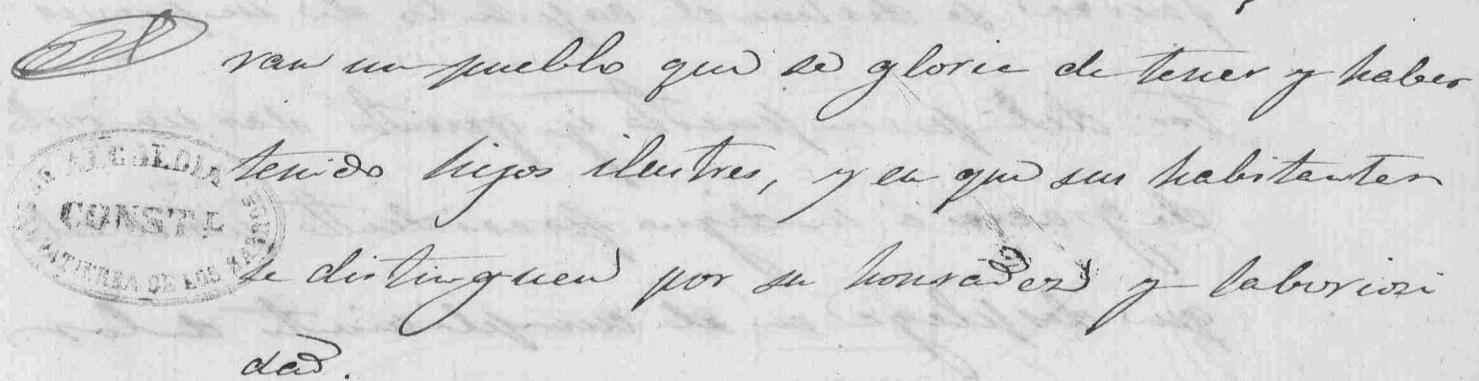 ran un pueblo que se gloria de tener y haber
tenido hijos ilustres, y en que sus habitantes
se distinguen por su honradez y laboriosi
dad.
ALCALDIA
CONSTL
FUENTIERRA DE LOS BARROS